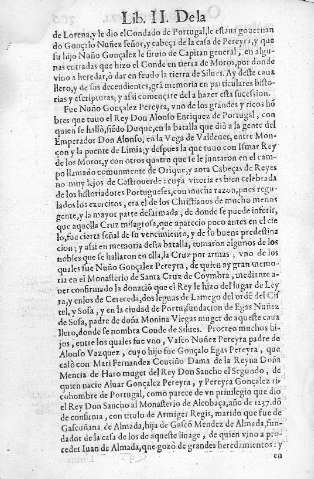 Lib. II. De la
de Lorena, y le dio el Condado de Portugal, le estaua gouernan
do Gonçalo Nuñez señor, y cabeça de la casa de Pereyra, y que
su hijo Nuño Gonçalez le siruio de Capitan general, en algu-
nas entradas que hizo el Conde en tierra de Moros, por donde
vino a heredar, ò dar en feudo la tierra de Silues. Ay deste caua
llero, y de sus decendientes, grã memoria en particulares histo-
rias y escripturas, y assi començarè della hazer esta sucession.
Fue Nuño Gonçalez Pereyra, vno de los grandes y ricos hõ
bres que tuuo el Rey Don Alonso Enriquez de Portugal, con
quien se hallò, siẽdo Duque, en la batalla que diò a la gente del
Emperador Don Alonso, en la Vega de Valdeuez, entre Mon-
çon y la puente de Limia; y despues la que tuuo con Ismar Rey
de los Moros, y con otros quatro que se le juntaron en el cam-
po llamado comunmente de Orique, y aora Cabeças de Reyes
no muy lejos de Castrouerde: cuya vitoria es bien celebrada
de los historiadores Portugueses, con mucha razon, pues regu-
lados los exercitos, era el de los Christianos de mucho menos
gente, y la mayor parte desarmada, de donde se puede inferir,
que aquella Cruz milagrosa, que aparecio poco antes en el cie
lo, fue cierta señal de su vencimiento, y de su buena predestina
cion; y assi en memoria desta batalla, tomaron algunos de los
nobles que se hallaron en ella, la Cruz por armas, vno de los
quales fue Nuño Gonçalez Pereyra, de quien ay gran memo-
ria en el Monasterio de Santa Cruz de Coymbra, mediante a-
uer confirmado la donaciõ que el Rey le hizo del lugar de Ley
ra, y enjos de Cereceda, dos leguas de Lamego del ordẽ del Cis
tel, y Sosa, y en la ciudad de Porto, fundacion de Egas Nuñez
de Sosa, padre de doña Monina Viegas muger de aqueste caua
llero, donde se nombra Conde de Silues. Procreo muchos hi-
jos, entre los quales fue vno, Vasco Nuñez Pereyra padre de
Alonso Vazquez, cuyo hijo fue Gonçalo Egas Pereyra, que
casò con Mari Fernandez Cousiño Dama de la Reyna Doña
Mencia de Haro muger del Rey Don Sancho el Segundo, de
quien nacio Aluar Gonçalez Pereyra, y Pereyra Gonçalez ri-
cohombre de Portugal, como parece de vn priuilegio que dio
el Rey Don Sancho al Monasterio de Alcobaça, año de 1237. dõ
de confirma, con titulo de Armiger Regis, marido que fue de
Gascuñana de Almada, hija de Gascõ Mendez de Almada, fun-
dador de la casa de los de aqueste linage, de quien vino a pro-
ceder Iuan de Almada, que gozò de grandes heredamientos: y
en